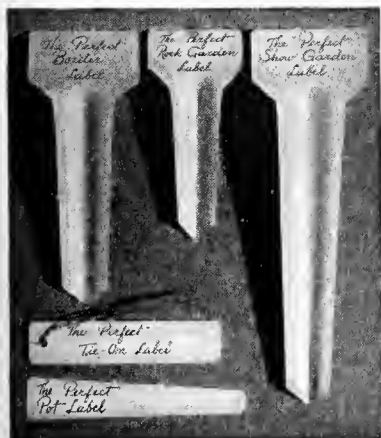 The Perfect
Border
Label
The Perfect
Rock Garden
Label
The "Perfect"
Show Garden
Label
The "Perfect"
Tie-On Label
The Perfect
Pot Label